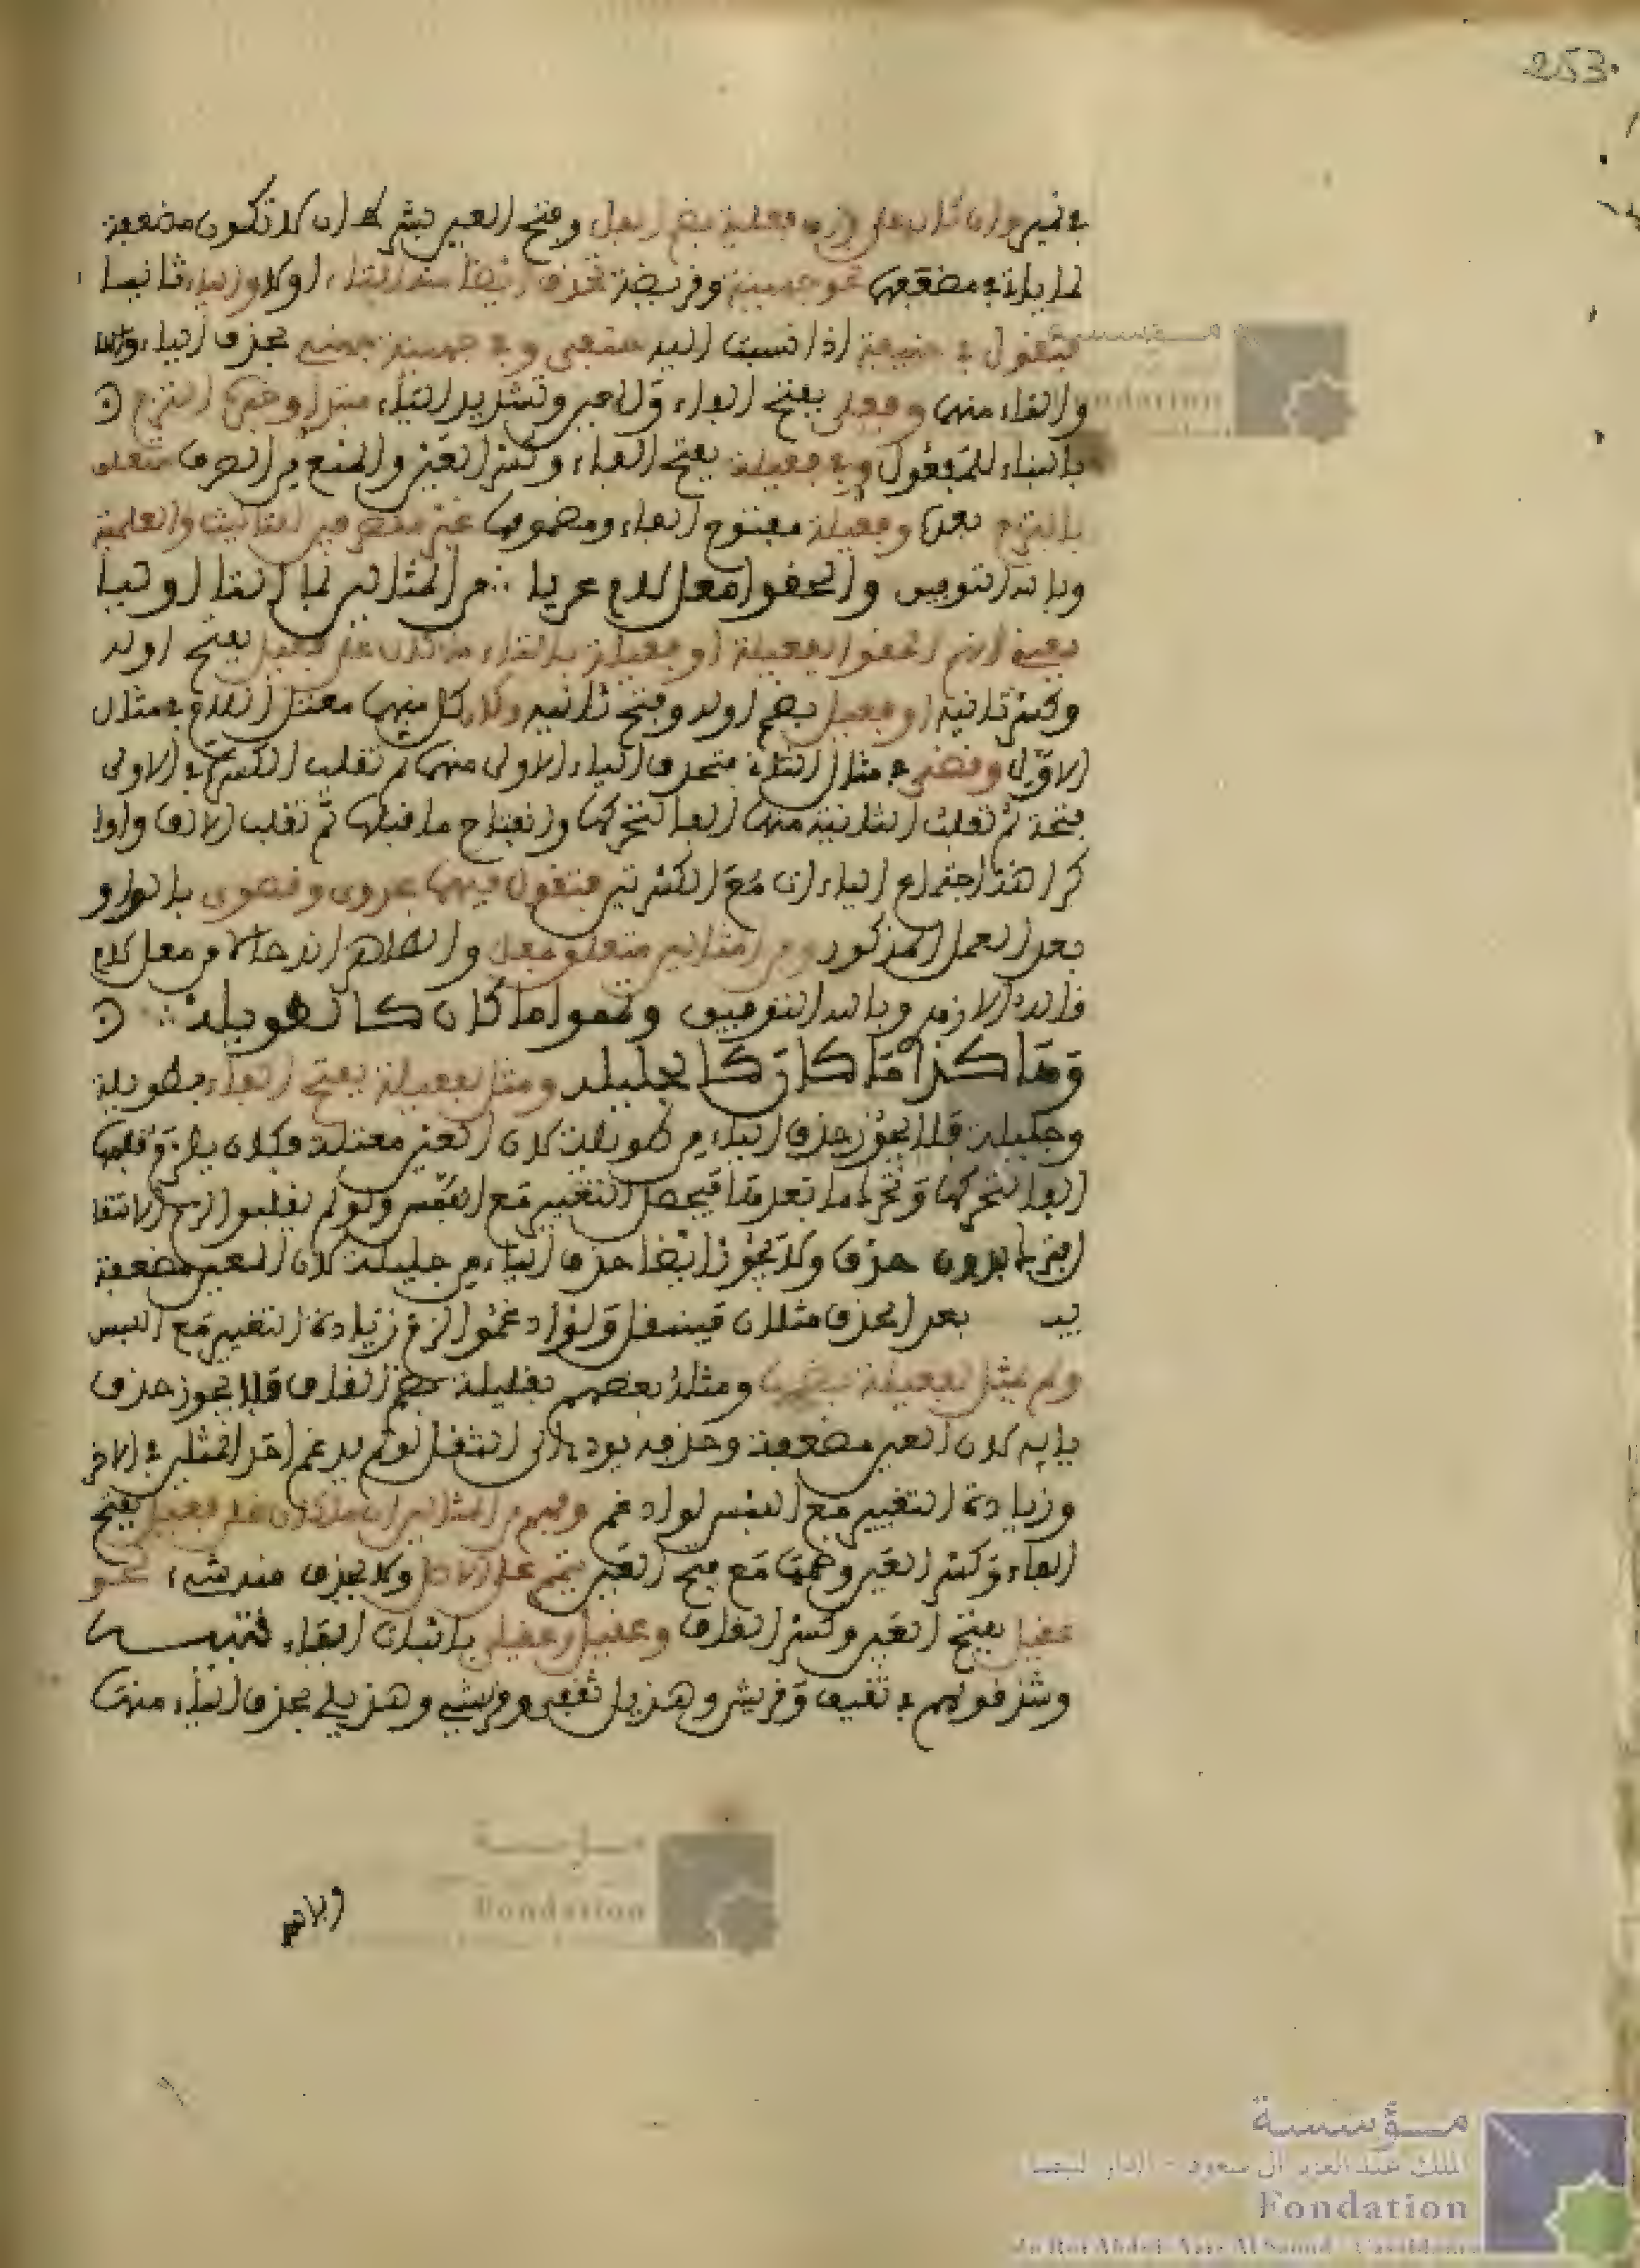 253
وفتح العين بشرط أن لا تكون مضعفة
لما يأتي في مضعفها نحو جهينة وقريضة تحذف أيضا منه التاء أولا والياء ثانيا
فتقول في حنيفة إذا نسبت إليه حنفي وفي جهينة جهني بحذف الياء
والتاء منهما وفعلي بفتح الفاء والعين وتشديد الياء مبتدأ وخبره التزم
بالبناء للمفعول وفي فعيلة بفتح الفاء وكسر العين والمنع من الصرف متعلق
بالتزم بعده وفعيلة مفتوح الفاء ومضمومها غير منصرفين للتأنيث والعلمية
وبالله التوفيق والحقوا معل لام عريا ∴ من المثالين بما التا أوليا
يعني أنهم ألحقوا بفعيلة أو فعيلة بالتاء ما كان على فعيل بفتح أوله
وكسر ثانيه أو فعيل بضم أوله وفتح ثانيه وكان كل منهما معتل اللام في مثال
الأول وقصي في مثال الثاني فتحذف الياء الأولى منهما ثم تقلب الكسرة في الأولى
فتحة ثم تقلب الثانية منهما ألفا لتحركها وانفتاح ما قبلها ثم تقلب الألف واوا
كراهة اجتماع الياءات مع الكسرتين فتقول فيهما عدوي وقصوي بالواو
بعد العمل المذكور ومن المثالين متعلق بمعل والظاهر أنه حال من معل لام
قاله الأزهري وبالله التوفيق وتمموا ما كان كالطويلة ∴
وهكذا ما كان كالجليلة ومثل بفعيلة بفتح الفاء بطويلة
وجليلة فلا يجوز حذف الياء من طويلة لأن العين معتلة فكان يلزم قلبها
ألفا لتحركها وتحرك ما بعدها فيحصل التغيير مع اللبس ولو لم يقلبوا لزم الاستثقال
بدون حذف ولا يجوز أيضا حذف الياء من جليلة لأن العين مضعفة
بعد الحذف مثلان فيثقل ولو أدغموا لزم زيادة التغيير مع اللبس
ولم يمثل لفعيلة بضمها ومثله بعضهم بقليلة بضم القاف فلا يجوز حذف
يائه لأن العين مضعفة وحذفه يؤد إلى الثقل لو لم يدغم أحد المثلين في الآخر
وزيادة التغيير مع اللبس لو أدغم وفهم من المثالين أن ما كان على فعيل بفتح
الفاء وكسر العين وضمها مع فتح العين يتم على الأصل ولا يحذف منه شيء نحو
عقيل بفتح العين وكسر القاف وعقيل وعقيلي بإثبات الياء تنبيه
وشذ قولهم في ثقيف وقريش وهذيل ثقفي وقرشي وهذلي بحذف الياء منها
مؤسسة
الملك عبد العزيز آل سعود - الدار البيضاء
Fondation
du Roi Abdul-Aziz Al Saoud - Casablanca